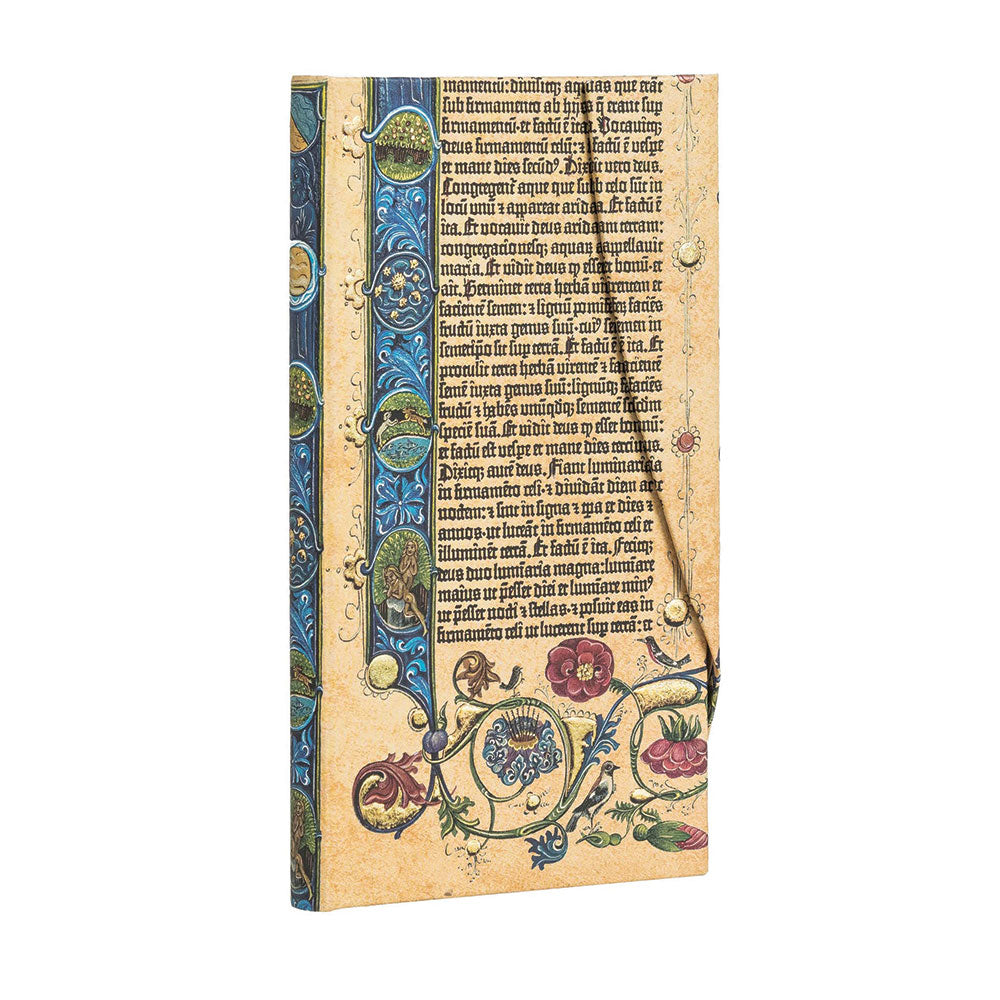 mamentū: divisitq; aquas que erāt
sub firmamento ab hijs q̄ erant sup
firmamentū· et factū ē ita. Vocavitq;
deus firmamentū celū: ⁊ factū ē vespe
et mane dies secūdꝰ. Dixit vero deus.
Congregent̄ aque que sub celo sūt in
locū unū ⁊ appareat arida. Et factū ē
ita. Et vocavit deus aridam terram:
congregacionesq; aquaꝝ appellavit
maria. Et vidit deus ꝙ esset bonū· et
ait. Germinet terra herbā virentem et
faciente semen: ⁊ lignū pomiferū faciēs
fructū iuxta genus suū· cuiꝰ semen in
semetipso sit sup terrā. Et factū ē ita. Et
protulit terra herbā virente ⁊ faciente
semē iuxta genus suū: lignūq; faciēs
fructū ⁊ habēs unūqdq; semente scdm
specie suā. Et vidit deus ꝙ esset bonū:
et factū est vespe et mane dies tercius.
Dixitq; autē deus. Fiant luminaria
in firmamēto celi· ⁊ dividāt diem ac
noctem: ⁊ sint in signa ⁊ tpa et dies ⁊
annos· ut luceāt in firmamēto celi et
illuminēt terrā. Et factū ē ita. Fecitq;
deus duo luminaria magna: luminare
maius ut pesset diei et luminare minꝰ
ut pesset nocti ⁊ stellas· ⁊ posuit eas in
firmamēto celi ut lucerent sup terrā: et